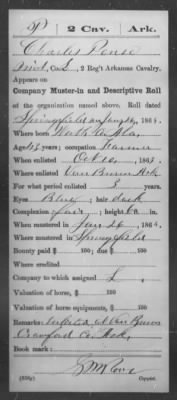 2 Cav. Ark.
Charles
Co. L, 2 Reg't Arkansas Cavalry.
Appears on
Company Muster-in and Descriptive Roll
of the organization named above. Roll dated
Springfield 186
Where born
Age years; occupation Farmer
When enlisted Oct 186
Where enlisted Van Buren Ark
For what period enlisted 3 years.
Eyes Blue; hair dark
Complexion fair; height ft. in.
When mustered in 26, 1864.
Where mustered in Springfield
Bounty paid $ 100; due $ 100
Where credited
Company to which assigned L
Valuation of horse, $ 100
Valuation of horse equipments, $ 100
Remarks: enlisted at Van Buren
Crawford Co. Ark.
Book mark:
Copyist.